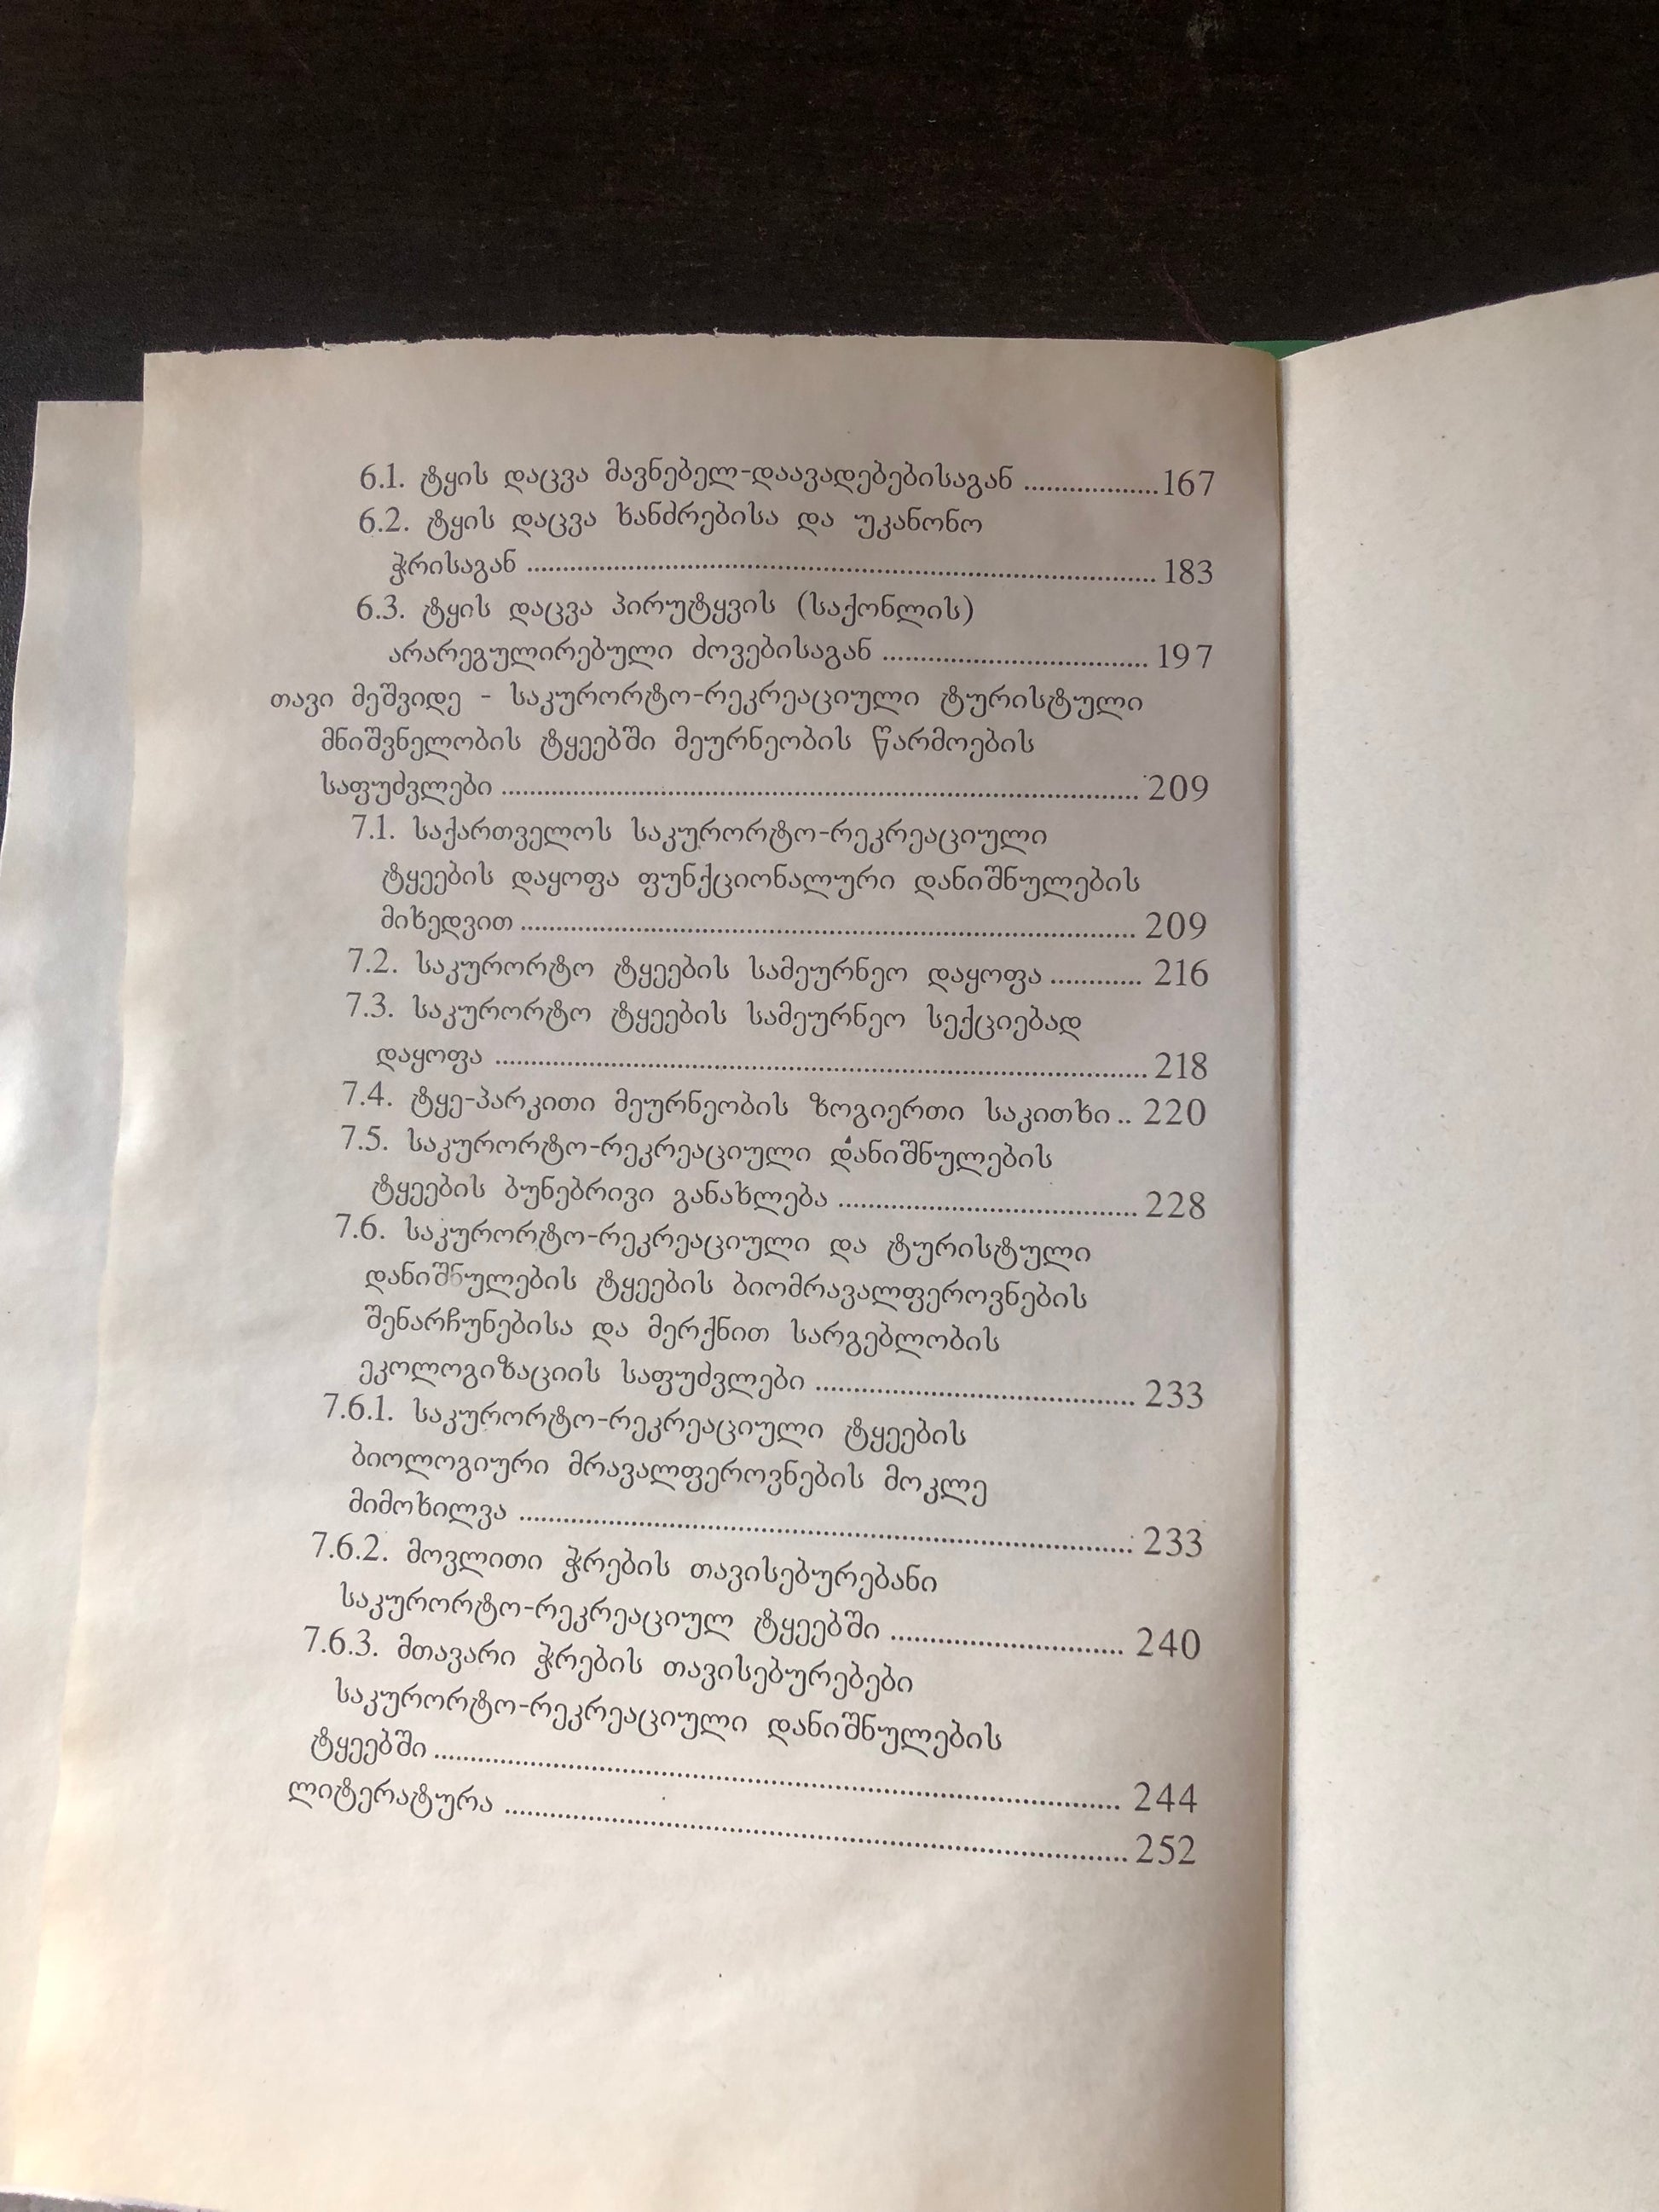 6.1. ტყის დაცვა მავნებელ-დაავადებებისაგან ..................167
6.2. ტყის დაცვა ხანძრებისა და უკანონო
ჭრისაგან ........................................................................................183
6.3. ტყის დაცვა პირუტყვის (საქონლის)
არარეგულირებული ძოვებისაგან .....................................197
თავი მეშვიდე - საკურორტო-რეკრეაციული ტურისტული
მნიშვნელობის ტყეებში მეურნეობის წარმოების
საფუძვლები .........................................................................................209
7.1. საქართველოს საკურორტო-რეკრეაციული
ტყეების დაყოფა ფუნქციონალური დანიშნულების
მიხედვით ......................................................................................209
7.2. საკურორტო ტყეების სამეურნეო დაყოფა ............216
7.3. საკურორტო ტყეების სამეურნეო სექციებად
დაყოფა ...........................................................................................218
7.4. ტყე-პარკითი მეურნეობის ზოგიერთი საკითხი..220
7.5. საკურორტო-რეკრეაციული დანიშნულების
ტყეების ბუნებრივი განახლება .........................................228
7.6. საკურორტო-რეკრეაციული და ტურისტული
დანიშნულების ტყეების ბიომრავალფეროვნების
შენარჩუნებისა და მერქნით სარგებლობის
ეკოლოგიზაციის საფუძვლები ............................................233
7.6.1. საკურორტო-რეკრეაციული ტყეების
ბიოლოგიური მრავალფეროვნების მოკლე
მიმოხილვა .....................................................................................233
7.6.2. მოვლითი ჭრების თავისებურებანი
საკურორტო-რეკრეაციულ ტყეებში ................................240
7.6.3. მთავარი ჭრების თავისებურებები
საკურორტო-რეკრეაციული დანიშნულების
ტყეებში ...............................................................................................244
ლიტერატურა ......................................................................................252